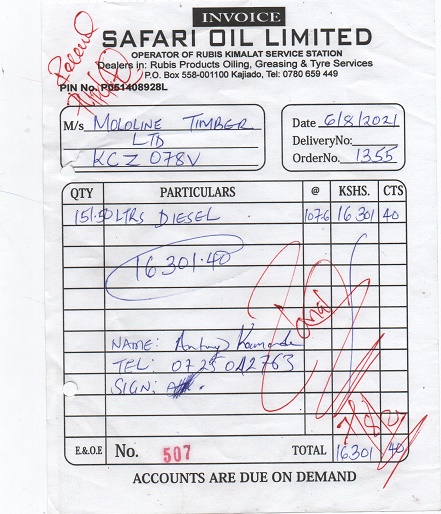 INVOICE
SAFARI OIL LIMITED
OPERATOR OF RUBIS KIMALAT SERVICE STATION
Dealers in: Rubis Products Oiling, Greasing & Tyre Services
P.O. Box 558-001100 Kajiado, Tel: 0780 659 449
PIN No. P051408928L
M/s MOLOLINE TIMBER
LTD
KCZ 078V
Date 6/8/2021
DeliveryNo:
OrderNo. 1355
QTY PARTICULARS @ KSHS. CTS
151.50 LTRS DIESEL 107.6 16 301 40
16 301.40
NAME: Antony Kamande
TEL: 0725 042763
SIGN:
7/8/21
E.&O.E No. 507 TOTAL 16301 40
ACCOUNTS ARE DUE ON DEMAND